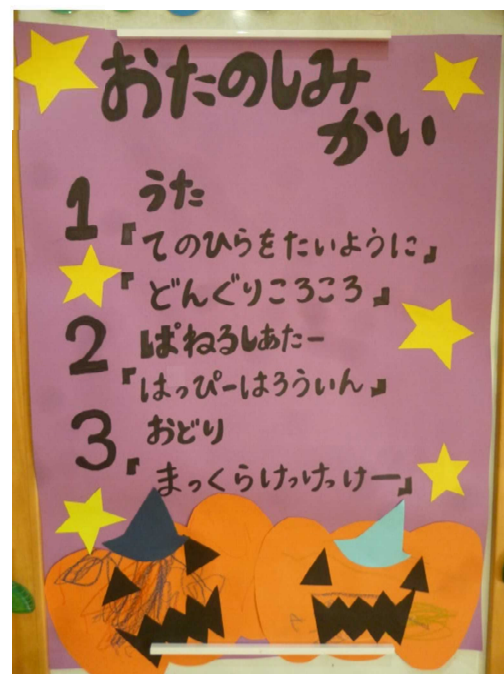 おたのしみ
かい
1 うた
『てのひらをたいように』
『どんぐりころころ』
2 ぱねるしあたー
『はっぴーはろうぃん』
3 おどり
『まっくらけっけっけー』